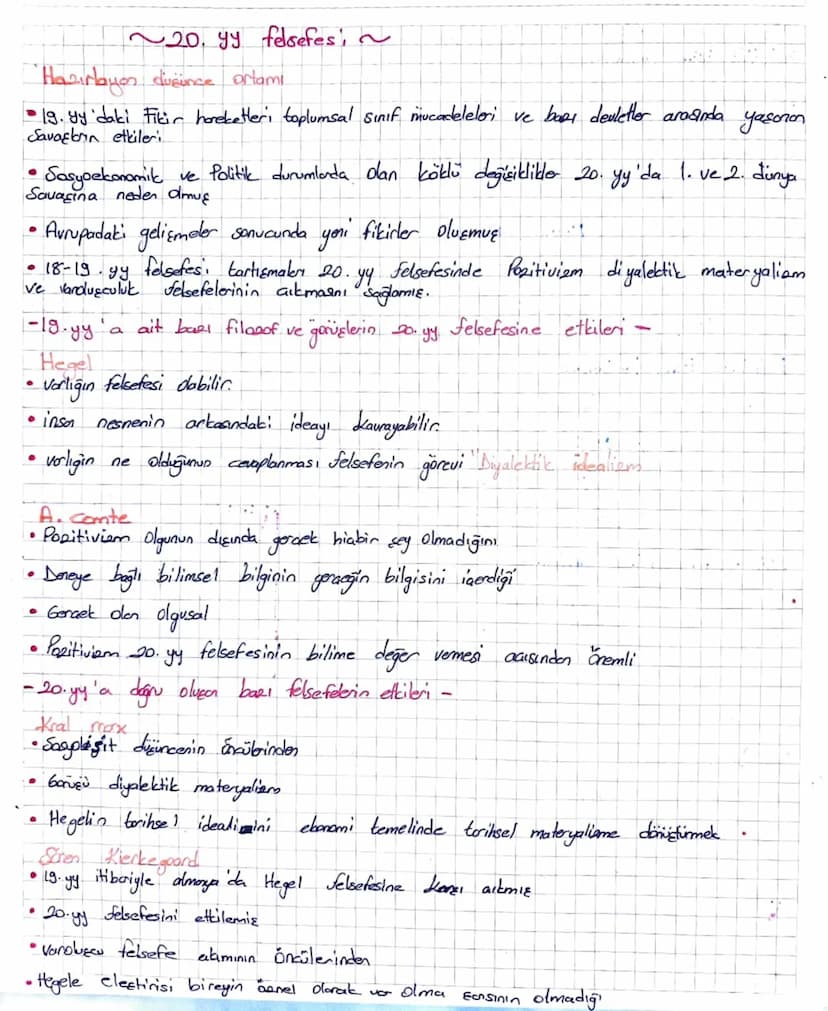 ~ 20. yy felsefesi ~
Hazırlayan düşünce ortamı
• 19. yy'daki Fikir hareketleri toplumsal sınıf mücadeleleri ve bazı devletler arasında yaşanan
Savaşların etkileri
• Sosyoekonomik ve Politik durumlarda olan köklü değişiklikler 20. yy'da 1. ve 2. dünya
Savaşına neden olmuş
• Avrupadaki gelişmeler sonucunda yeni fikirler oluşmuş
• 18-19. yy felsefesi tartışmaları 20. yy felsefesinde Pozitivizm diyalektik materyalizm
ve varoluşculuk felsefelerinin çıkmasını sağlamış.
- 19. yy'a ait bazı filozof ve görüşlerin 20. yy felsefesine etkileri -
Hegel
• varlığın felsefesi olabilir.
• insan nesnenin arkasındaki ideayı kavrayabilir.
• varlığin ne olduğunun cevaplanması felsefenin görevi "Diyalektik idealizm
A. comte
• Pozitivizm Olgunun dışında gerçek hiçbir şey olmadığını
• Deneye bağlı bilimsel bilginin gerçeğin bilgisini içerdiği
• Gerçek olan olgusal
• Pozitivizm 20. yy felsefesinin bilime değer vermesi açısından önemli
- 20. yy'a doğru oluşan bazı felsefelerin etkileri -
Kral marx
• Sosyalist düşüncenin öncülerinden
• Görüşü diyalektik materyalizm
• Hegelin tarihsel idealizmini ekonomi temelinde tarihsel materyalizme dönüştürmek.
Sören Kierkegaard
• 19. yy itibariyle almanya'da Hegel felsefesine karşı çıkmış
• 20. yy felsefesini etkilemiş
• varoluşcu felsefe akımının öncülerinden
• Hegele eleştirisi bireyin öznel olarak var olma şansının olmadığı